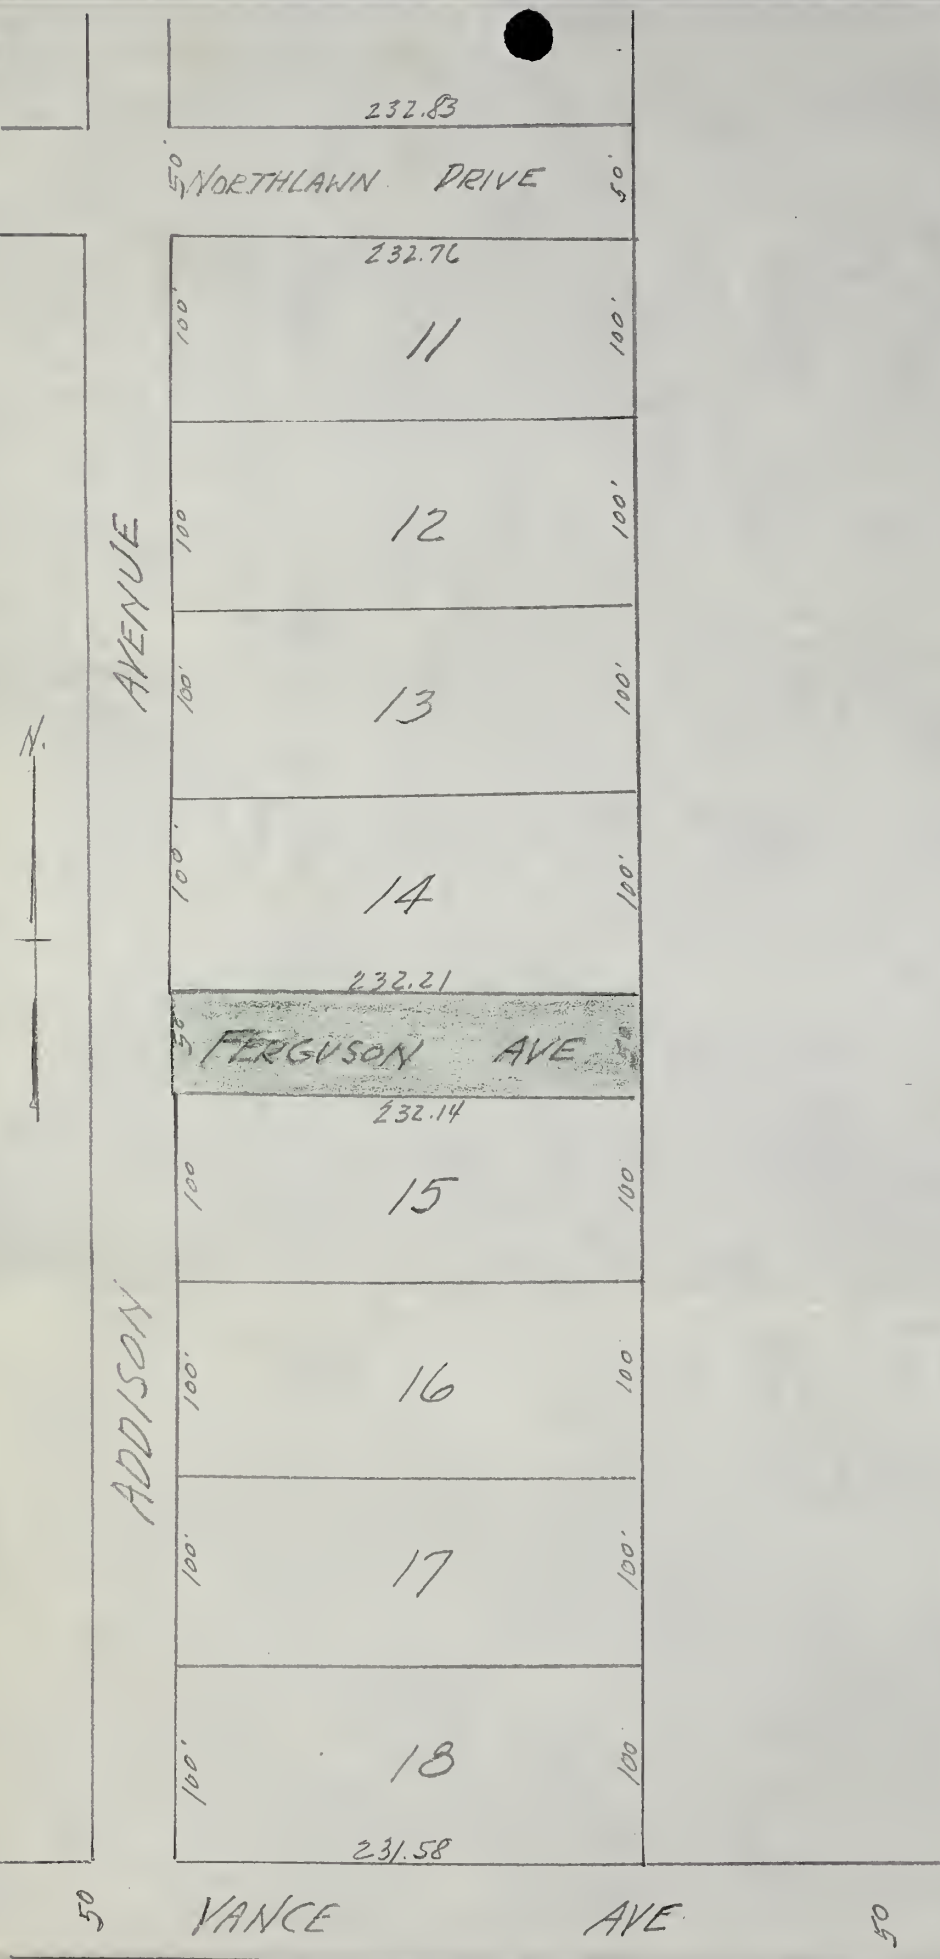 232.83
50'
NORTHLAWN DRIVE
50'
232.76
100'
11
100'
100'
12
100'
AVENUE
100'
13
100'
N.
100'
14
100'
232.21
50'
FERGUSON AVE
50
232.14
100
15
100
ADDISON
100'
16
100
100'
17
100'
100'
18
100
231.58
50
VANCE AVE.
50